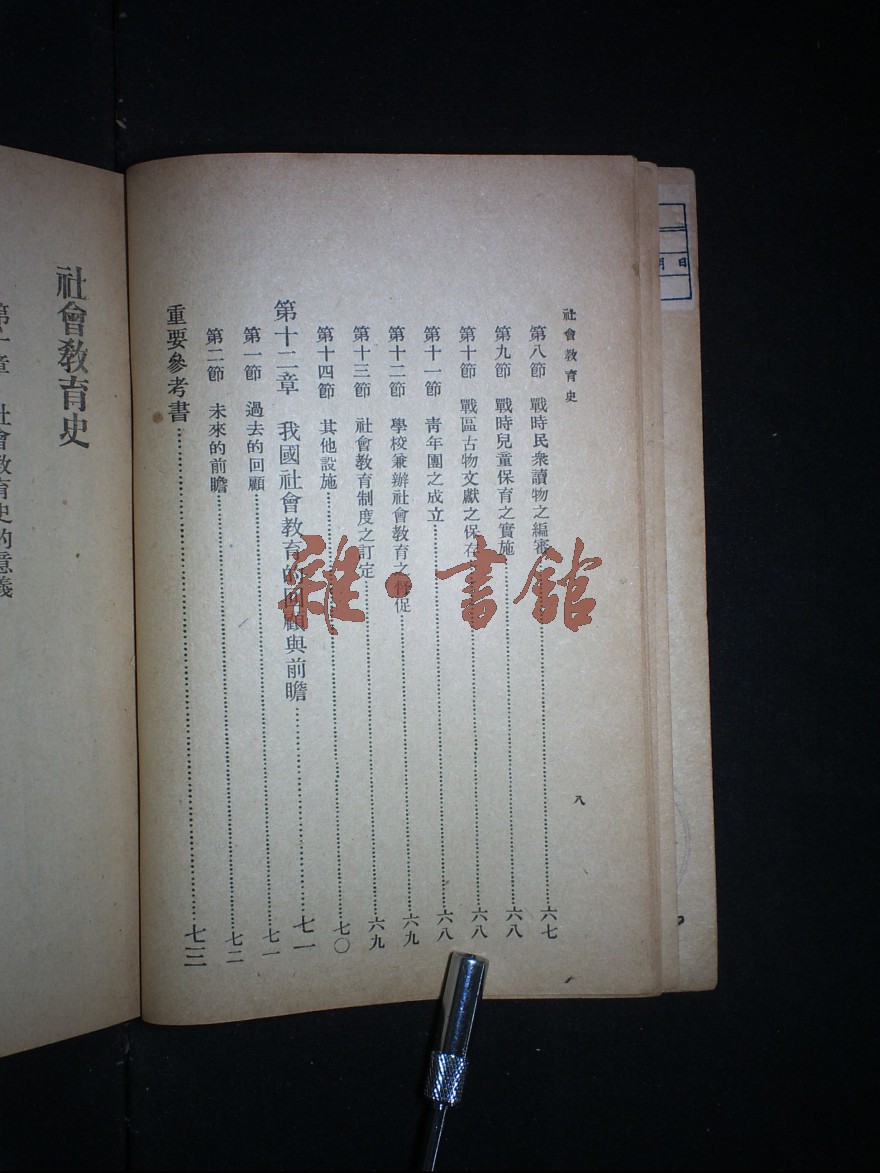 社會敎育史
第八節　戰時民衆讀物之編審………六七
第九節　戰時兒童保育之實施………六八
第十節　戰區古物文獻之保存………六八
第十一節　靑年團之成立………六八
第十二節　學校兼辦社會敎育之督促………六九
第十三節　社會敎育制度之訂定………六九
第十四節　其他設施………七〇
第十二章　我國社會敎育的回顧與前瞻………七一
第一節　過去的回顧………七一
第二節　未來的前瞻………七二
重要參考書………七三
八
社會敎育史
第一章　社會敎育史的意義
雜·書舘
期日